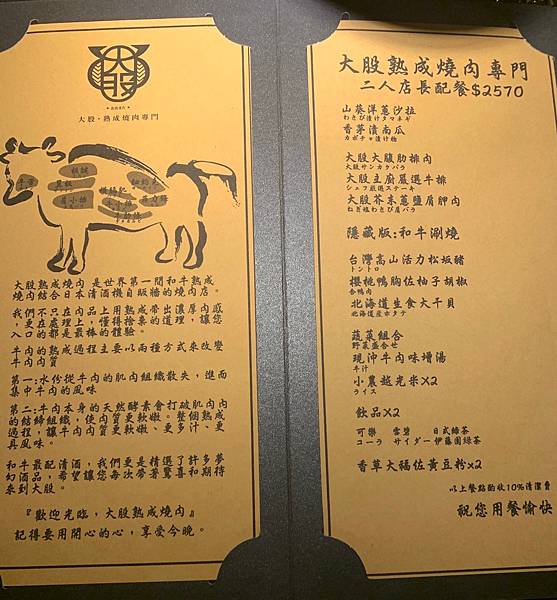 大股
大股·熟成燒肉專門
大股熟成燒肉 是世界第一間和牛熟成
燒肉結合日本清酒機自販牆的燒肉店。
我們不只在肉品上用熟成帶出濃厚肉感
,更在處理上,懂得捨棄的道理,讓您
入口的都是最棒的體驗。
牛肉的熟成過程主要以兩種方式來改變
牛肉肉質
第一:水份從牛肉的肌肉組織散失,進而
集中牛肉的風味
第二:牛肉本身的天然酵素會打破肌肉內
的結締組織,使肉質更軟嫩。整個熟成
過程,讓牛肉肉質更軟嫩、更多汁、更
具風味。
和牛最配清酒,我們更是精選了許多夢
幻酒品,希望讓您每次帶著驚喜和期待
來到大股。
『歡迎光臨,大股熟成燒肉』
記得要用開心的心,享受今晚。
大股熟成燒肉專門
二人店長配餐$2570
山葵洋蔥沙拉
わさび漬けタマネギ
香茅漬南瓜
カボチャ漬け物
大股大腹肋排肉
大股サンカクバラ
大股主廚嚴選牛排
シェフ厳選ステーキ
大股芥末蔥鹽肩胛肉
ねぎ塩わさび肩バラ
隱藏版:和牛涮燒
台灣高山活力松坂豬
トントロ
櫻桃鴨胸佐柚子胡椒
合鴨肉
北海道生食大干貝
北海道産ホタテ
蔬菜組合
野菜盛合せ
現沖牛肉味增湯
牛汁
小農越光米X2
ライス
飲品X2
可樂 雪碧 日式綠茶
コーラ サイダー 伊藤園綠茶
香草大福佐黃豆粉x2
以上餐點酌收10%清潔費
祝您用餐愉快